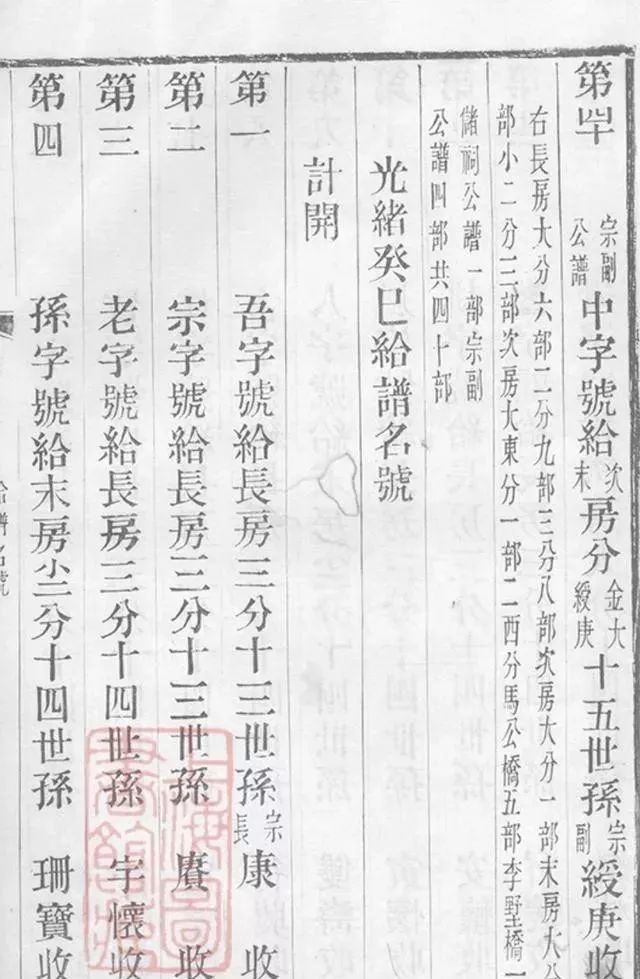 第四十 宗副公譜 中字號給 次末 房分 金大綬庚 十五世孫 宗副 綬庚收
右長房大分六部二分九部三分八部次房大分一部末房大八
部小二分三部次房大東分一部二西分馬公橋五部李墅橋一
儲祠公譜一部宗副
公譜四部共四十部
光緒癸巳給譜名號
計開
第一 吾字號給長房三分十三世孫 宗長 康 收
第二 宗字號給長房三分十三世孫 賡 收
第三 老字號給長房三分十四世孫 宇懷收
第四 孫字號給末房小二分十四世孫 珊寶收
給譜名號